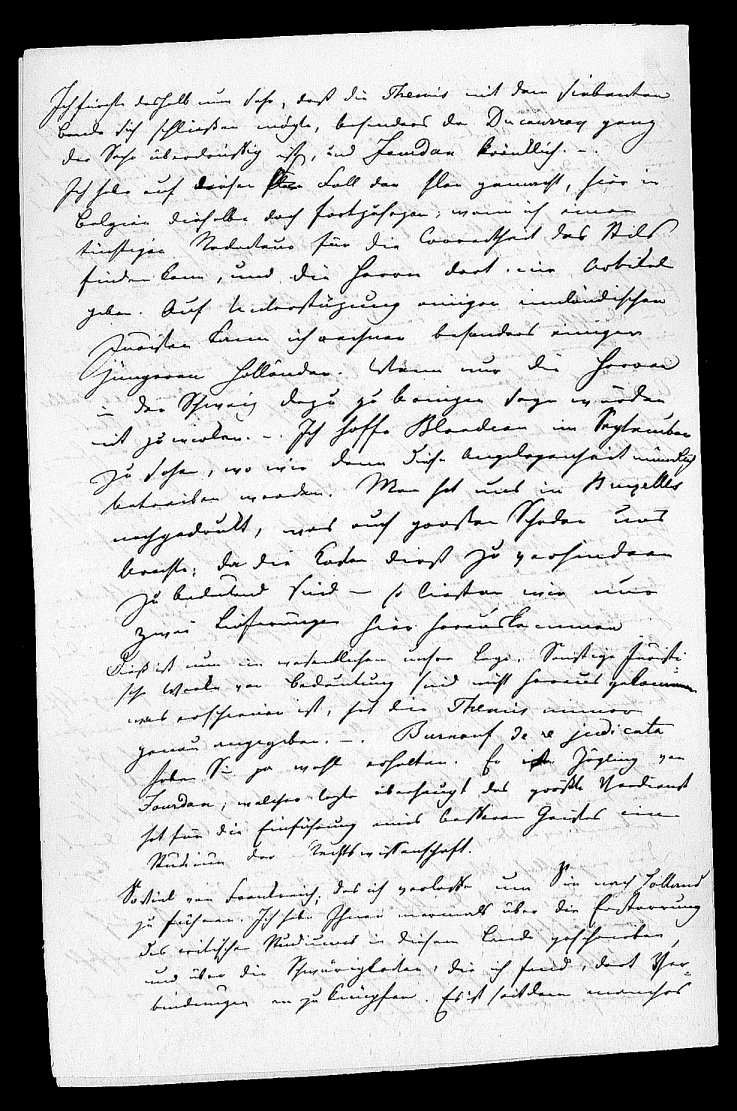 Ich fürchte deshalb nun sehr, daß die Themis mit dem siebenten
Bande sich schließen möge, besonders da Ducaurroy ganz
der Sache überdrüssig ist, und Jourdan kränklich. –.
Ich habe auf diesen Fall den Plan gemacht, hier in
Belgien dieselbe doch fortzusezen, wenn ich einen
tüchtigen Redacteur für die Correctheit des Stils
finden kann, und die Herrn dort mir Artikel
geben. Auf Unterstüzung einiger inländischen
Juristen kann ich rechnen besonders einiger
jüngeren Holländer. Wenn nur die Herren
in der Schweiz dazu zu bringen seyn würden
mit zu wirken. –. Ich hoffe Blondeau im September
zu sehen, wo wir denn diese Angelegenheit mündlich
betreiben werden. Man hat uns in Bruxelles
nachgedrukt, was auch großen Schaden uns
brachte; da die Kosten dieß zu verhindern
zu bedeutend sind – so ließen wir nur
zwei Lieferungen hier herauskommen
Dieß ist nun im wesentlichen unsre Lage. Sonstige juristi
sche Werke von Bedeutung sind nicht herausgekommen
was erschienen ist, hat die Themis immer
genau angegeben. –. Burnouf de re judicata
haben Sie ja wohl erhalten. Er ist Zögling von
Jourdan, welcher letzte überhaupt das größte Verdienst
hat für die Einführung eines besseren Geistes im
Studium der Rechtswissenschaft.
Soviel von Frankreich, das ich verlasse um Sie nach Holland
zu führen. Ich habe Ihnen mehrmals über die Erstarrung
des critischen Studiums in diesem Lande geschrieben,
und über die Schwürigkeiten, die ich fand, dort Ver-
bindungen anzuknüpfen. Es ist seitdem manches